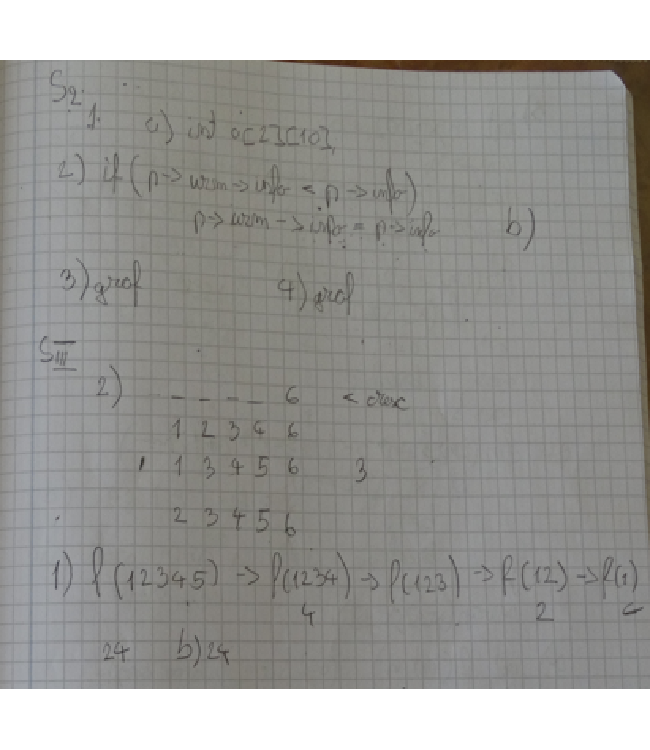 S2.
1. c) int a[2][10],
2) if (p-> urm-> info < p-> info)
p-> urm -> info = p-> info b)
3) graf 4) graf
SIII
2) _ _ _ _ 6 < cresc
1 2 3 4 6
1 3 4 5 6 3
2 3 4 5 6
1) f(12345) -> f(1234) -> f(123) -> f(12) -> f(1)
4 2
24 b) 24